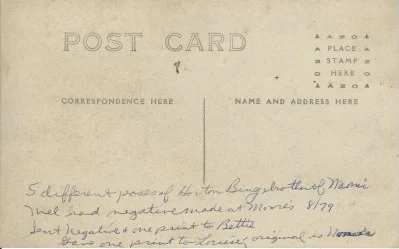 POST CARD
AZO
PLACE
STAMP
HERE
AZO
CORRESPONDENCE HERE
NAME AND ADDRESS HERE
5 different poses of Horton Binge brother of Naomi
Mel had negative made at Moore's 8/79
Sent negatives one print to Bettie
Gave one print to Louise, original is